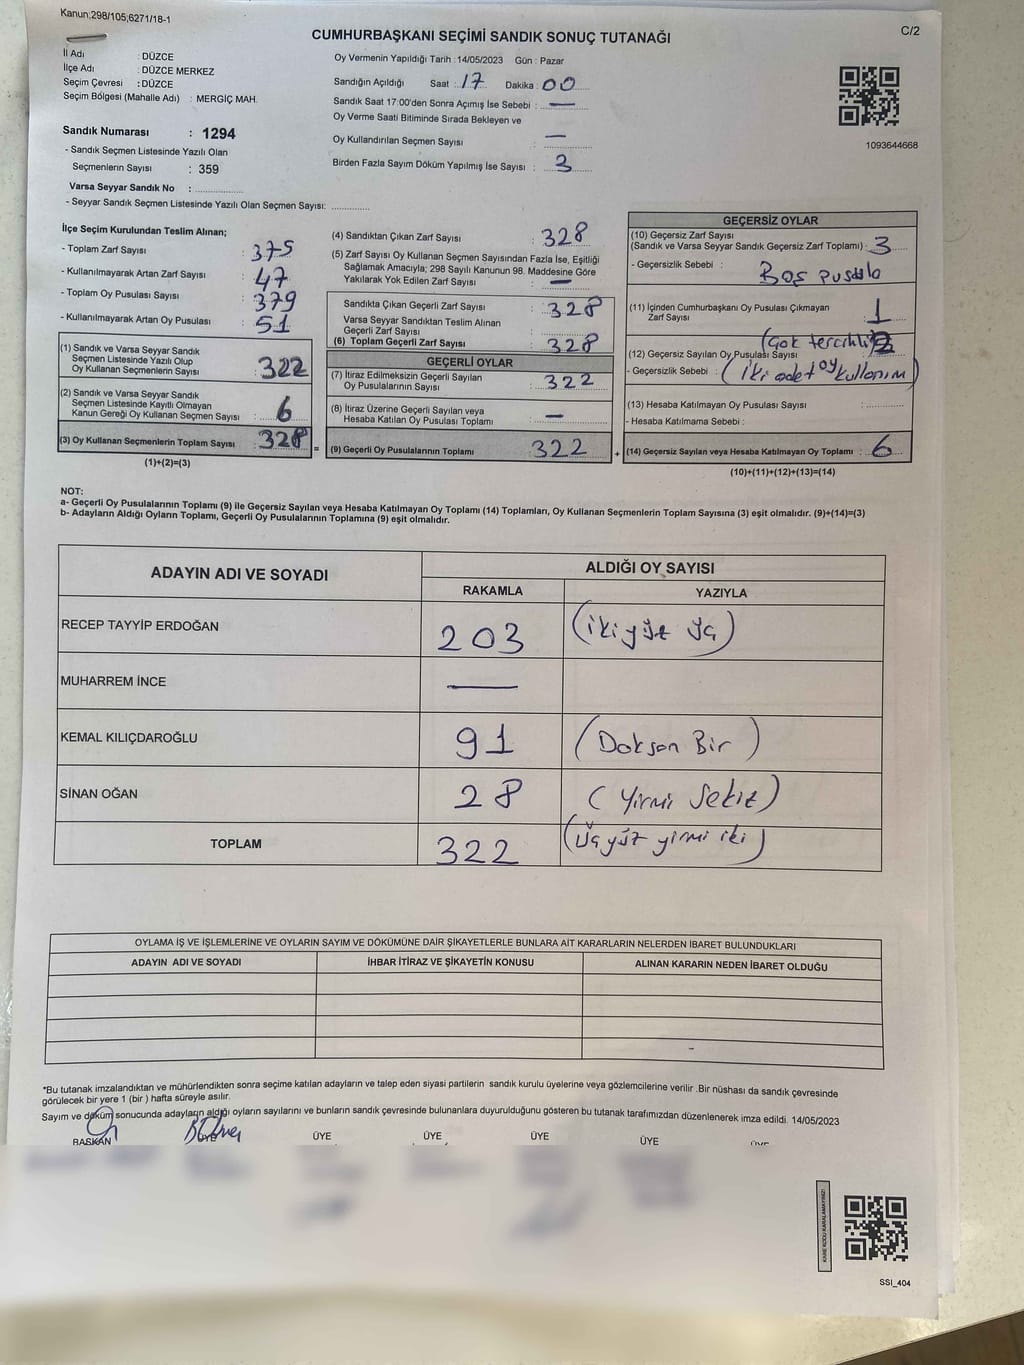 Kanun;298/105;6271/18-1
C/2
CUMHURBAŞKANI SEÇİMİ SANDIK SONUÇ TUTANAĞI
İl Adı : DÜZCE
İlçe Adı : DÜZCE MERKEZ
Seçim Çevresi : DÜZCE
Seçim Bölgesi (Mahalle Adı) : MERGİÇ MAH.
Sandık Numarası : 1294
- Sandık Seçmen Listesinde Yazılı Olan
Seçmenlerin Sayısı : 359
Varsa Seyyar Sandık No :
- Seyyar Sandık Seçmen Listesinde Yazılı Olan Seçmen Sayısı:
Oy Vermenin Yapıldığı Tarih : 14/05/2023 Gün : Pazar
Sandığın Açıldığı Saat : 17 Dakika : 00
Sandık Saat 17:00'den Sonra Açımış İse Sebebi : —
Oy Verme Saati Bitiminde Sırada Bekleyen ve
Oy Kullandırılan Seçmen Sayısı : —
Birden Fazla Sayım Döküm Yapılmış İse Sayısı : 3
1093644668
İlçe Seçim Kurulundan Teslim Alınan;
- Toplam Zarf Sayısı : 375
- Kullanılmayarak Artan Zarf Sayısı : 47
- Toplam Oy Pusulası Sayısı : 379
- Kullanılmayarak Artan Oy Pusulası : 51
(1) Sandık ve Varsa Seyyar Sandık
Seçmen Listesinde Yazılı Olup
Oy Kullanan Seçmenlerin Sayısı : 322
(2) Sandık ve Varsa Seyyar Sandık
Seçmen Listesinde Kayıtlı Olmayan
Kanun Gereği Oy Kullanan Seçmen Sayısı : 6
(3) Oy Kullanan Seçmenlerin Toplam Sayısı : 328 =
(1)+(2)=(3)
(4) Sandıktan Çıkan Zarf Sayısı : 328
(5) Zarf Sayısı Oy Kullanan Seçmen Sayısından Fazla İse, Eşitliği
Sağlamak Amacıyla; 298 Sayılı Kanunun 98. Maddesine Göre
Yakılarak Yok Edilen Zarf Sayısı : —
Sandıkta Çıkan Geçerli Zarf Sayısı : 328
Varsa Seyyar Sandıktan Teslim Alınan
Geçerli Zarf Sayısı :
(6) Toplam Geçerli Zarf Sayısı : 328
GEÇERLİ OYLAR
(7) İtiraz Edilmeksizin Geçerli Sayılan
Oy Pusulalarının Sayısı : 322
(8) İtiraz Üzerine Geçerli Sayılan veya
Hesaba Katılan Oy Pusulası Toplamı : —
(9) Geçerli Oy Pusulalarının Toplamı : 322 +
GEÇERSİZ OYLAR
(10) Geçersiz Zarf Sayısı
(Sandık ve Varsa Seyyar Sandık Geçersiz Zarf Toplamı) : 3
- Geçersizlik Sebebi : Boş pusula
(11) İçinden Cumhurbaşkanı Oy Pusulası Çıkmayan
Zarf Sayısı : 1
(12) Geçersiz Sayılan Oy Pusulası Sayısı (Çok tercihli) 2
- Geçersizlik Sebebi : (İki adet oy kullanım)
(13) Hesaba Katılmayan Oy Pusulası Sayısı :
- Hesaba Katılmama Sebebi :
(14) Geçersiz Sayılan veya Hesaba Katılmayan Oy Toplamı : 6
(10)+(11)+(12)+(13)=(14)
NOT:
a- Geçerli Oy Pusulalarının Toplamı (9) ile Geçersiz Sayılan veya Hesaba Katılmayan Oy Toplamı (14) Toplamları, Oy Kullanan Seçmenlerin Toplam Sayısına (3) eşit olmalıdır. (9)+(14)=(3)
b- Adayların Aldığı Oyların Toplamı, Geçerli Oy Pusulalarının Toplamına (9) eşit olmalıdır.
ADAYIN ADI VE SOYADI ALDIĞI OY SAYISI
RAKAMLA YAZIYLA
RECEP TAYYİP ERDOĞAN 203 (İkiyüz Üç)
MUHARREM İNCE —
KEMAL KILIÇDAROĞLU 91 (Doksan Bir)
SİNAN OĞAN 28 (Yirmi Sekiz)
TOPLAM 322 (Üçyüz yirmi iki)
OYLAMA İŞ VE İŞLEMLERİNE VE OYLARIN SAYIM VE DÖKÜMÜNE DAİR ŞİKAYETLERLE BUNLARA AİT KARARLARIN NELERDEN İBARET BULUNDUKLARI
ADAYIN ADI VE SOYADI İHBAR İTİRAZ VE ŞİKAYETİN KONUSU ALINAN KARARIN NEDEN İBARET OLDUĞU
*Bu tutanak imzalandıktan ve mühürlendikten sonra seçime katılan adayların ve talep eden siyasi partilerin sandık kurulu üyelerine veya gözlemcilerine verilir .Bir nüshası da sandık çevresinde
görülecek bir yere 1 (bir ) hafta süreyle asılır.
Sayım ve döküm sonucunda adayların aldığı oyların sayılarını ve bunların sandık çevresinde bulunanlara duyurulduğunu gösteren bu tutanak tarafımızdan düzenlenerek imza edildi. 14/05/2023
BAŞKAN ÜYE ÜYE ÜYE ÜYE ÜYE ÜYE
KARE KODU KARALAMAYINIZ!
SSI_404